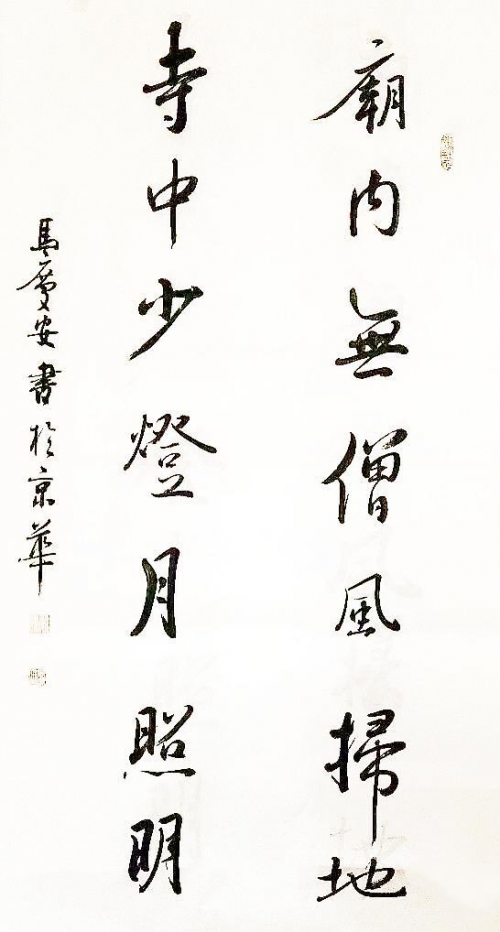 廟内無僧風掃地
寺中少燈月照明
馬慶安書於京華